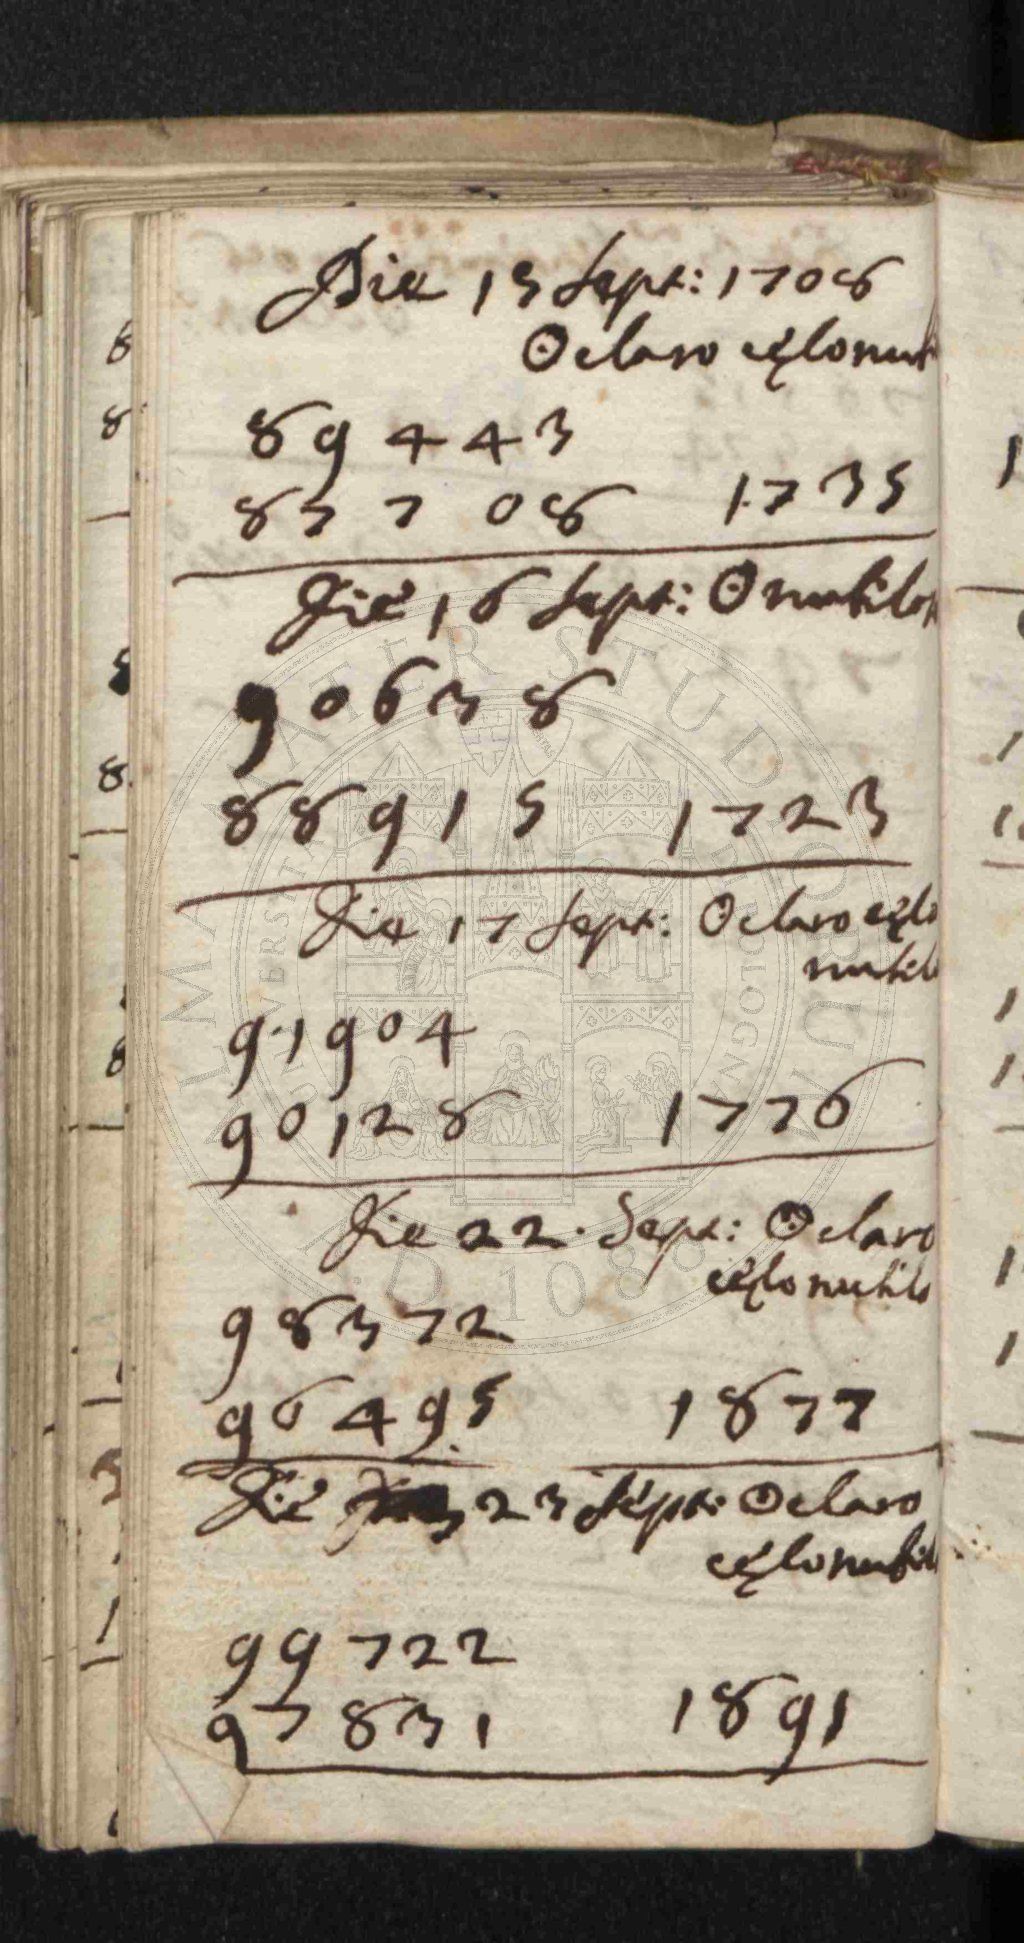 Die 15 Sept: 1708
☉ claro cęlo rut
89443
87708 1735
Die 16 Sept: ☉ rutilo
90638
88915 1723
Die 17 Sept: ☉ claro cęlo
rutilo
91904
90128 1776
Die 22. Sept: ☉ claro
cęlo rutilo
98372
96495 1877
Die 23 Sept: ☉ claro
cęlo rutil
99722
97831 1891
ALMA MATER STUDIORUM
A.D. 1088